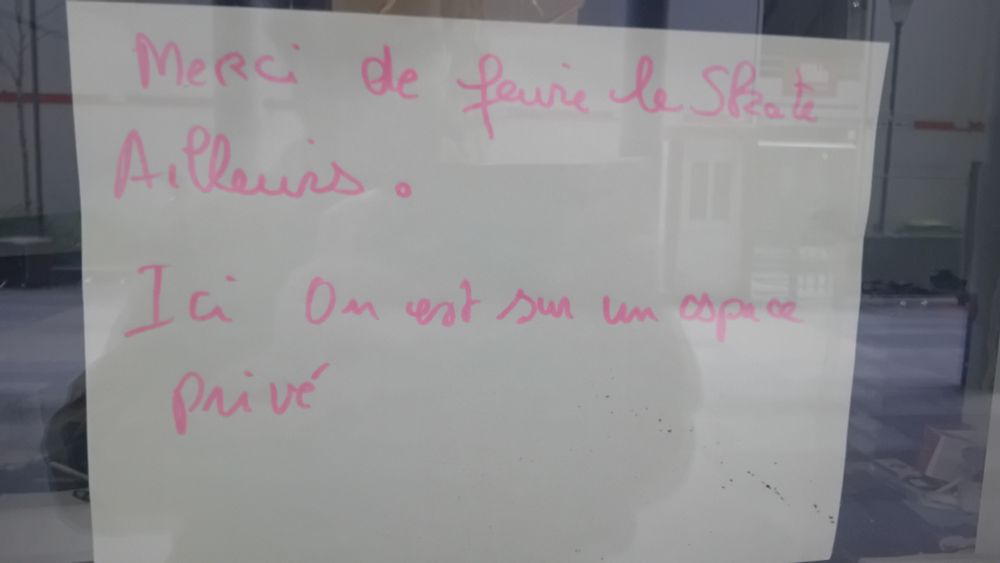 Merci de faire le Skate
Ailleurs.
Ici On est sur un espace
privé